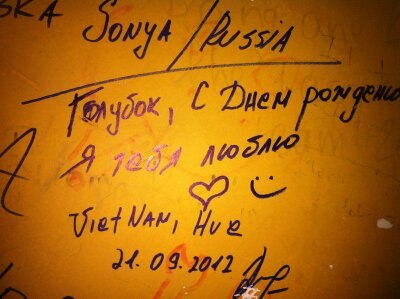 SONYA / RUSSIA
Голубок, с Днем рождения
Я тебя люблю
VietNAM, Hue
21.09.2012